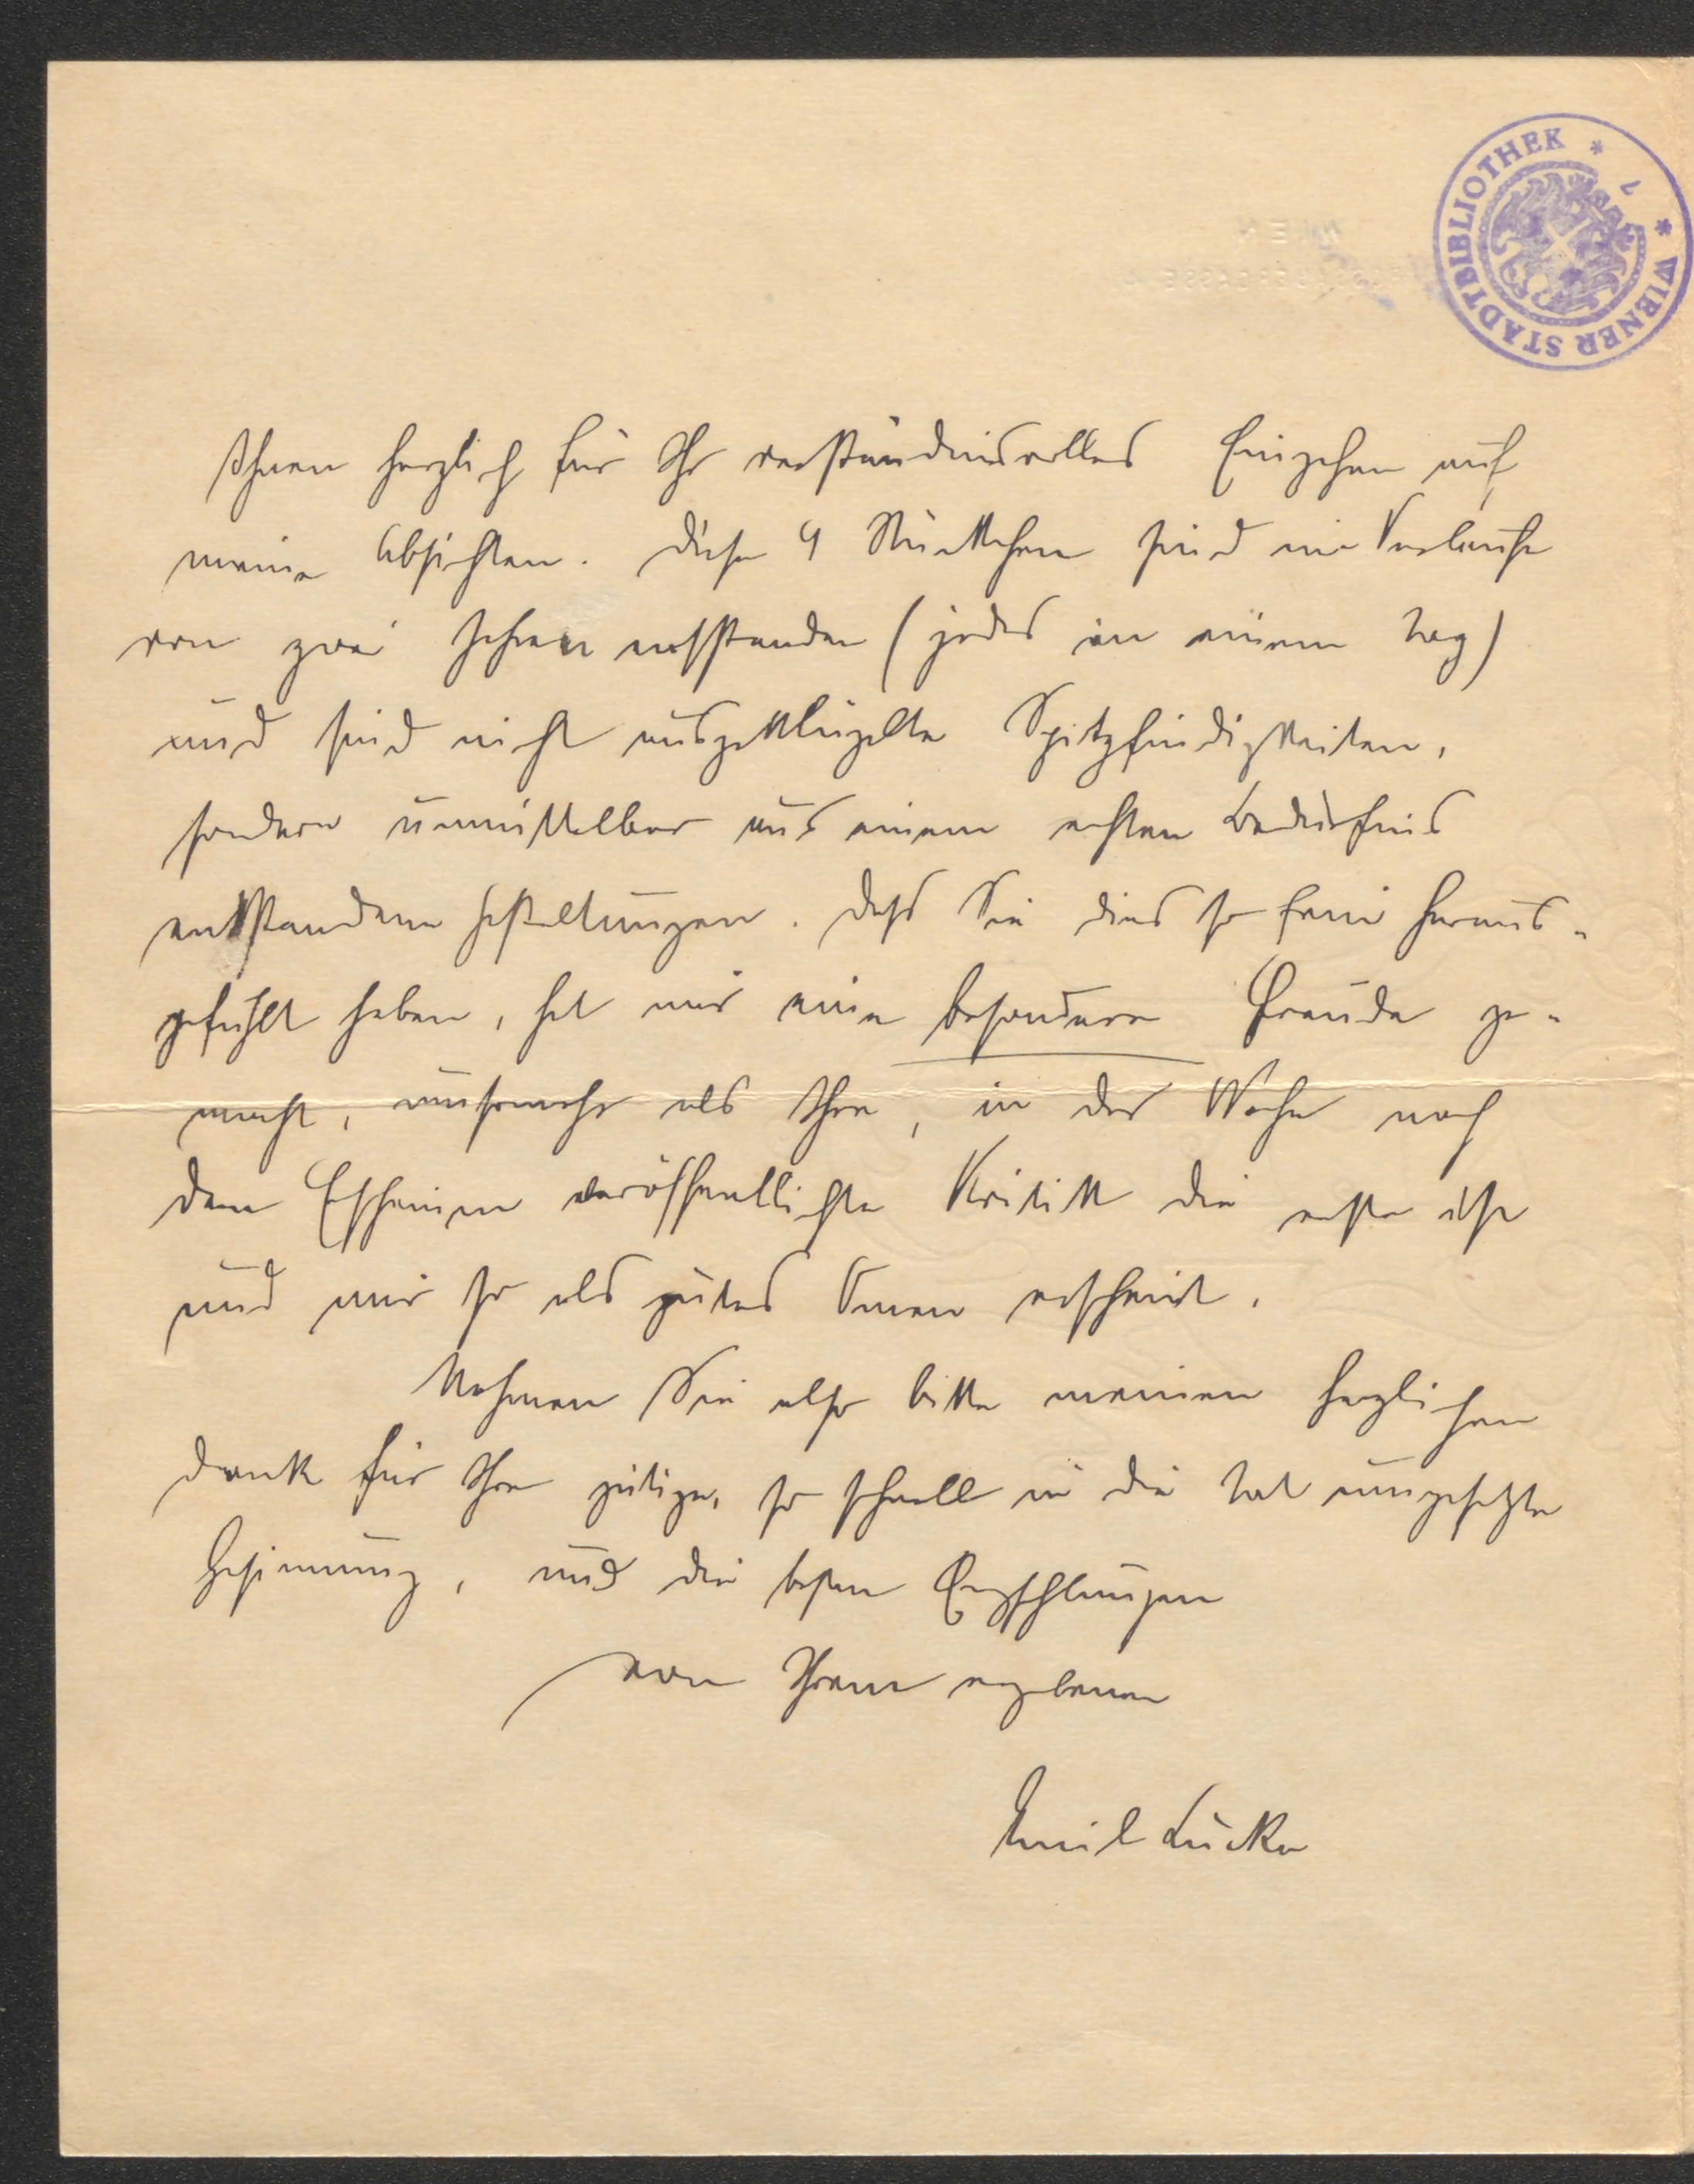 WIENER STADTBIBLIOTHEK
Ihnen herzlich für Ihr verständnisvolles Eingehen auf
meine Absichten. Diese 9 Stückchen sind im Verlaufe
von zwei Jahren entstanden (jedes in einem Tag)
und sind nicht ausgeklügelte Spitzfindigkeiten,
sondern unmittelbar aus einem echten Bedürfnis
entstandene Gestaltungen. Dass Sie dies so fein heraus-
gefühlt haben, hat mir eine besondere Freude ge-
macht, umsomehr als Ihre, in der Woche nach
dem Erscheinen veröffentlichte Kritik die erste ist
und mir so als gutes Omen erscheint.
Nehmen Sie also bitte meinen herzlichen
Dank für Ihre gütige, so schnell in die Tat umgesetzte
Gesinnung, und die besten Empfehlungen
von Ihrem ergebenen
Emil Lucka